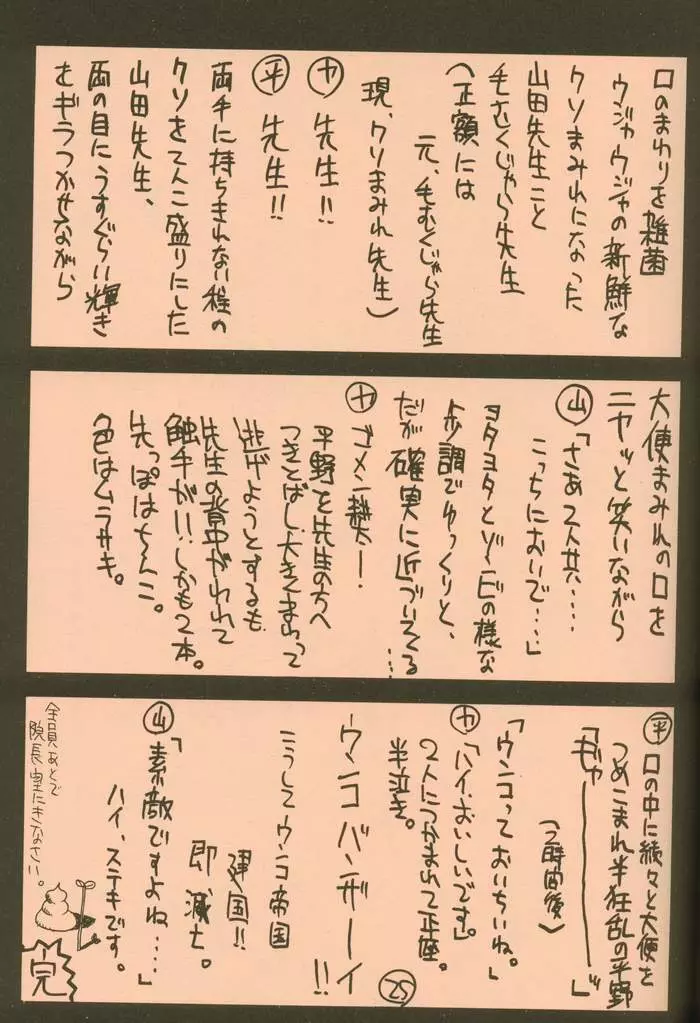 口のまわりを雑菌
ウジャウジャの新鮮な
クソまみれになった
山田先生こと
毛むくじゃら先生
(正額には
元、毛むくじゃら先生
現、クソまみれ先生)
カ 先生!!
平 先生!!
両手に持ちきれない程の
クソをてんこ盛りにした
山田先生、
両の目にうすぐらい輝き
をギラつかせながら
大使まみれの口を
ニヤッと笑いながら
山「さあ2人共……
こっちにおいで……」
ヨタヨタとゾンビの様な
歩調でゆっくりと、
だが確実に近づいてくる…
カ ゴメン越一!
平野を先生の方へ
つきとばし大きくまわって
逃げようとするも
先生の背中がわれて
触手が!!しかも2本。
先っぽはちんこ。
色はムラサキ。
平 口の中に続々と大便を
つめこまれ半狂乱の平野
「ギャーーーー」
(2時間後)
「ウンコっておいちいね。」
カ「ハイ、おいしいです」。
2人につかまれて正座。
半泣き。
ウンコバンザーイ!!
こうしてウンコ帝国
建国!!
即滅亡。
山「素敵ですよね……」
ハイ、ステキです。
全員あとで
院長室にきなさい。
完
25